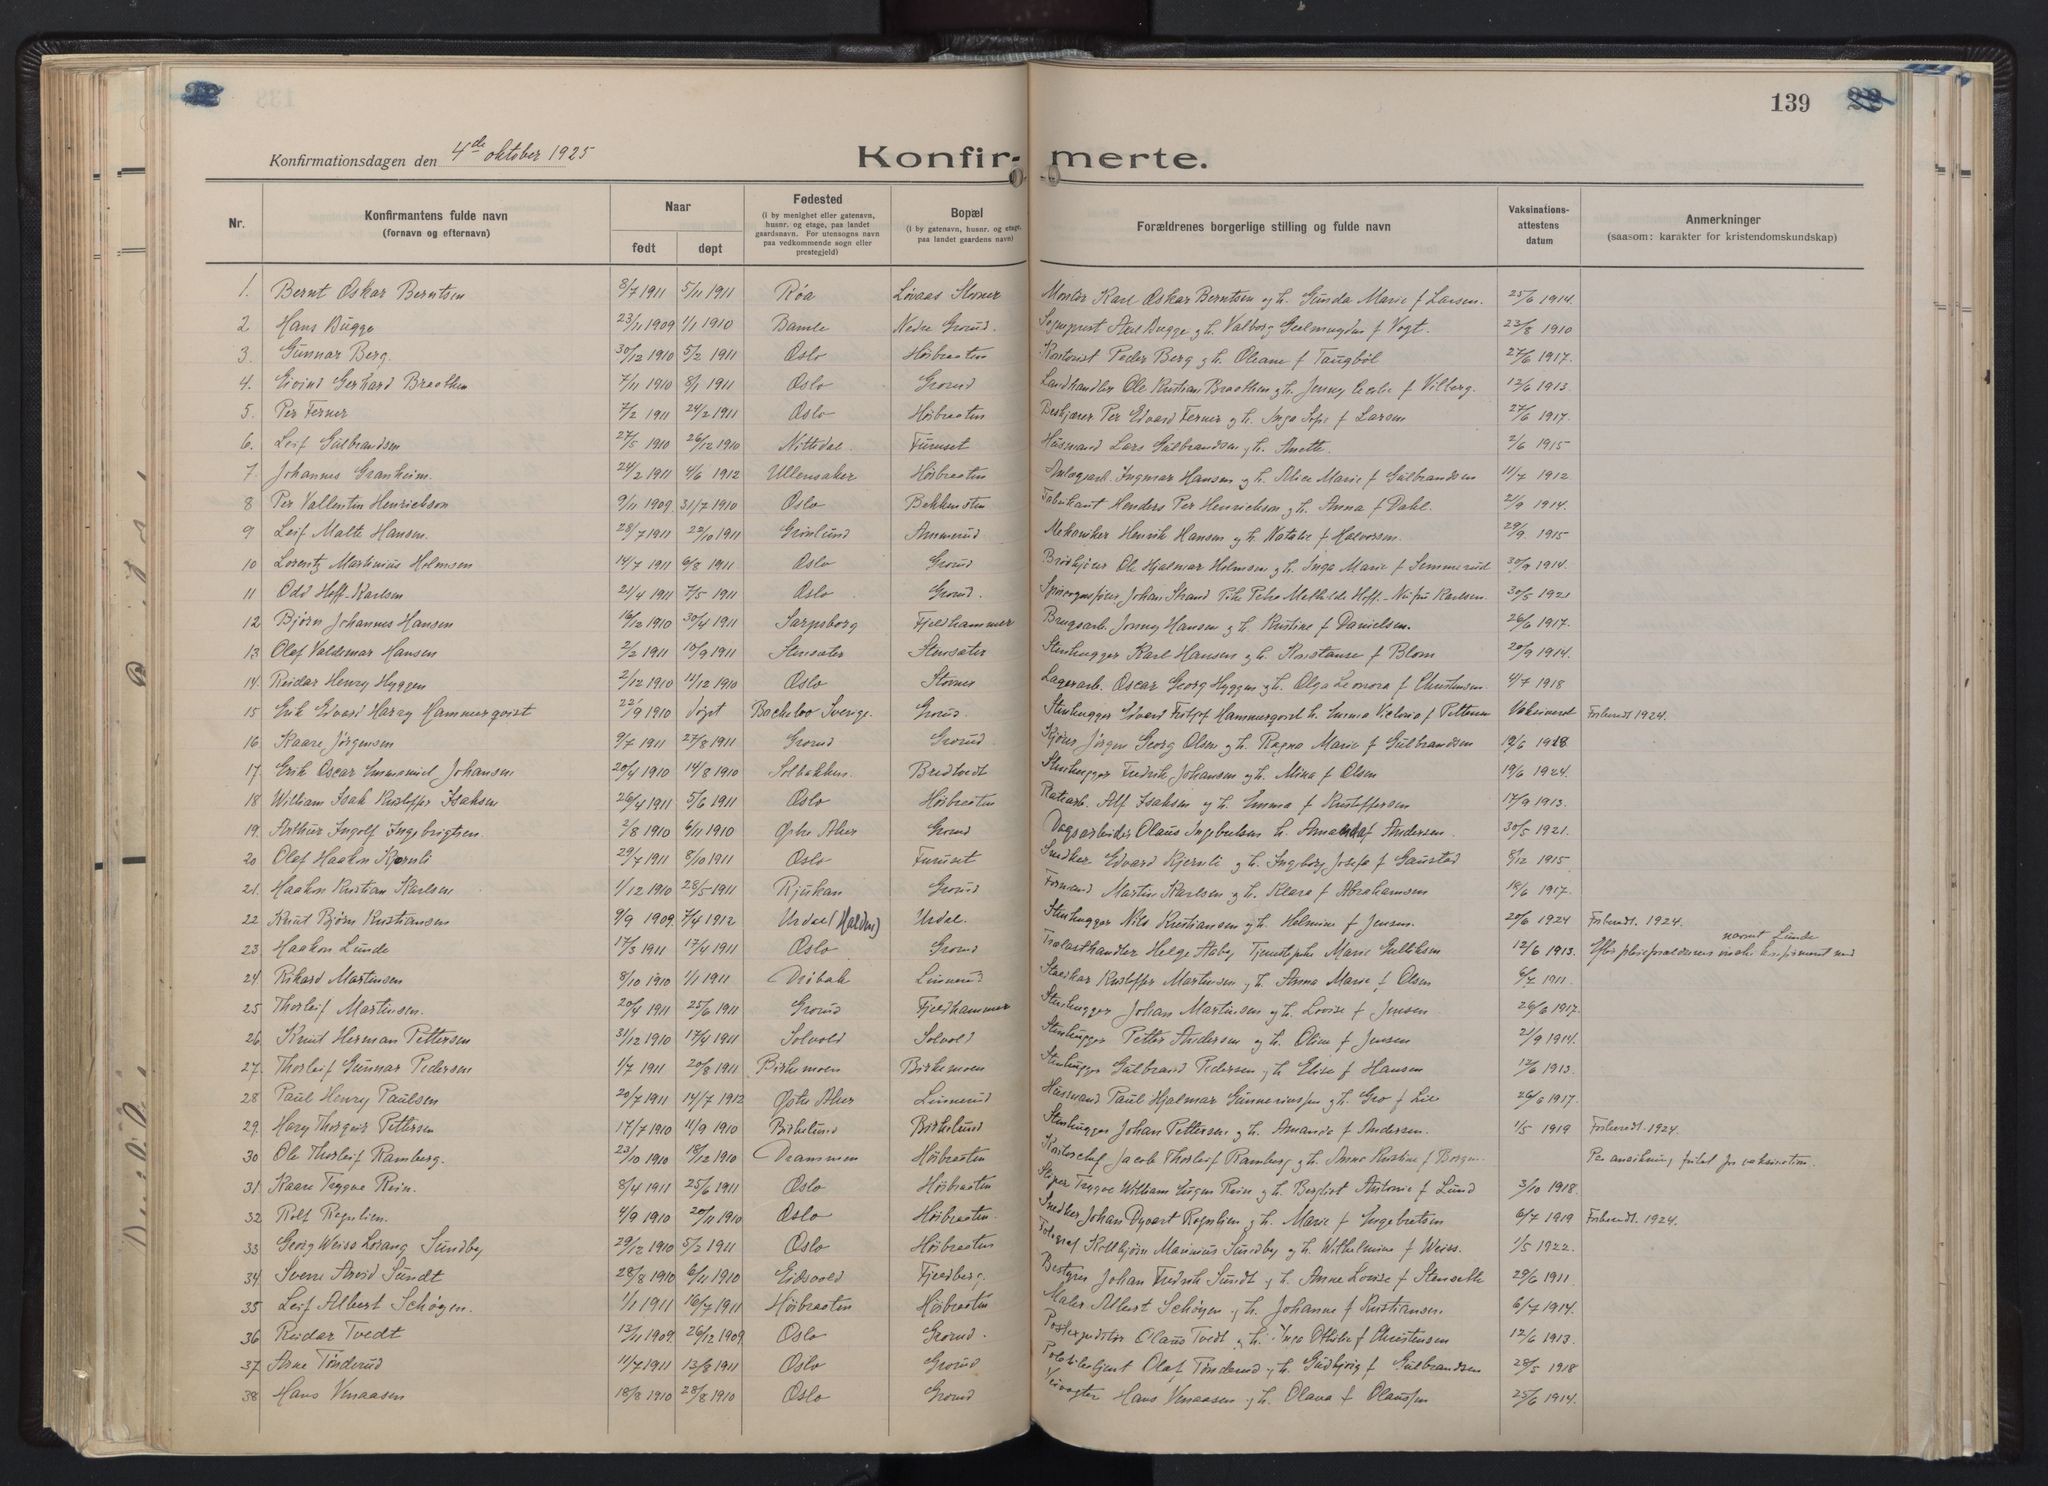 139
Konfirmationsdagen den 4de oktober 1925
Konfir- merte.
Nr. | Konfirmantens fulde navn (fornavn og efternavn) | Naar født | døpt | Fødested (i by menighet eller gatenavn, husnr. og etage, paa landet gaardsnavn. For utensogns navn paa vedkommende sogn eller prestegjeld) | Bopæl (i by gatenavn, husnr. og etage, paa landet gaardens navn) | Forældrenes borgerlige stilling og fulde navn | Vaksinationsattestens datum | Anmerkninger (saasom: karakter for kristendomskundskap)
1. Bernt Oskar Berntsen 8/7 1911 5/11 1911 Røa Løvaas Stovner Montør Karl Oskar Berntsen og h. Gunda Marie f Larsen. 25/6 1914.
2 Hans Bugge 23/11 1909 1/1 1910 Bamle Nedre Grorud. Sogneprest Bugge og h. Valborg f Vogt. 23/8 1910
3. Gunnar Berg. 30/12 1910 5/2 1911 Oslo Høibraaten Kontorist Peder Berg og h. Oleane f Taugbøl 27/6 1917.
4. Eivind Gerhard Braathen 7/11 1910 8/1 1911 Oslo Grorud Landhandler Ole Kristian Braathen og h. Jenny f Vilberg. 12/6 1913.
5. Per Ferner 7/2 1911 24/2 1911 Oslo Høibraaten Per Edvard Ferner og h. Inga Sofie f Larsen 27/6 1917.
6. Leif Gulbrandsen 27/5 1910 26/12 1910 Nittedal Furuset Husmand Lars Gulbrandsen og h. Anette 2/6 1915
7. Johannes Granheim. 24/2 1911 4/6 1912 Ullensaker Høibraaten Anlægsarb. Ingmar Hansen og h. Alice Marie f Gulbrandsen 11/7 1912
8 Per Vallentin Henrickson 9/11 1909. 31/7 1910 Oslo Bekkesten Fabrikant Henders Per Henrickson og h. Anna f Dahl. 2/9 1914.
9 Leif Malte Hansen. 28/7 1911 22/10 1911 Grønlund Ammerud Mekaniker Henrik Hansen og h. Natalie f Halvorsen. 29/9 1915
10 Lorentz Martinius Holmsen 14/7 1911 6/8 1911 Oslo Grorud Brødkjører Ole Hjalmar Holmsen og h. Inga Marie f Semmerud 30/9 1914.
11 Odd Hoff-Karlsen 21/4 1911 7/5 1911 Oslo Grorud. Johan Strand Pike Petra Mathilde Hoff - Nu fru Karlsen. 30/5 1921
12 Bjørn Johannes Hansen 16/12 1910 30/4 1911 Sarpsborg Fjeldhammer Brugsarb. Jonny Hansen og h. Kristine f Danielsen. 26/6 1917.
13 Olaf Valdemar Hansen 2/2 1911 10/9 1911 Stensæter Stensæter Stenhugger Karl Hansen og h. Konstanse f Blom 20/9 1914.
14. Reidar Henry Hyggen 2/12 1910 11/12 1910 Oslo Stovner Lagerarb. Oscar Georg Hyggen og h. Olga Leonora f Christensen. 4/7 1918
15 Erik Edvard Harry Hammerqvist 22/9 1910 døpt Sverige. Grorud. Stenhugger Edvard Fritjof Hammerqvist h. Emma Victoria f Pettersen Vaksineret Forberedt 1924.
16 Kaare Jørgensen 9/7 1911 27/8 1911 Grorud Grorud. Kjører Jørgen Georg Olsen og h. Ragna Marie f Gulbrandsen 12/6 1918
17. Erik Oscar Emmanuel Johansen 20/4 1910 14/8 1910 Solbakken. Bredtvedt Stenhugger Fredrik Johansen og h. Mina f Olsen 19/6 1924.
18 William Isak Kristoffer Isaksen 26/4 1911 5/6 1911 Oslo Høibraaten Alf Isaksen og h. Emma f Kristoffersen 17/9 1913.
19. Arthur Ingolf Ingebrigtsen. 2/8 1910 6/11 1910 Østre Aker Grorud Dagsarbeider Olaus Ingebretsen h. Amanda f Andersen. 30/5 1921.
20 Olaf Haakon Kjernli 29/7 1911 8/10 1911 Oslo Furuset Snedker Edvard Kjernli og h. Ingeborg Josefa f Gaustad 8/12 1915
21. Haakon Kristian Karlsen 1/12 1910 28/5 1911 Rjukan Grorud Formand Martin Karlsen og h. Klara f Abrahamsen 18/6 1917.
22 Knut Bjørn Kristiansen 9/9 1909. 7/4 1912 Urdal (Halden) Urdal. Stenhugger Nils Kristiansen og h. Helmine f Jensen. 20/6 1924 Forberedt. 1924.
23. Haakon Lunde 17/3 1911 17/4 1911 Oslo Grorud Trælasthandler Helge Aaby, Tjenestepike Marie 12/6 1913. Efter pleieforældrenes ønske konfirmeret med navnet Lunde
24. Rikard Martinsen 8/10 1910 1/1 1911 Drøbak Linnerud Kristoffer Martinsen og h. Anna Marie f Olsen 6/7 1911.
25 Thorleif Martinsen. 20/4 1911 25/6 1911 Grorud Fjeldhammer Stenhugger Johan Martinsen og h. Lovise f Jensen 26/6 1917.
26. Knut Herman Pettersen 31/12 1910 17/4 1911 Solvold Solvold Stenhugger Petter Andersen og h. Oline f Jensen 21/9 1914.
27. Thorleif Gunnar Pedersen 1/7 1911 20/8 1911 Birkemoen Birkemoen Stenhugger Gulbrand Pedersen og h. Elise f Hansen 12/6 1913.
28 Paul Henry Paulsen 20/7 1911 14/7 1912 Østre Aker Linnerud Husmand Paul Hjalmar Gunneriussen og h. Gro f Lie 26/6 1917.
29. Harry Thorgeir Pettersen 17/7 1910 11/9 1910 Birkelund Birkelund Stenhugger Johan Pettersen og h. Amanda f Andersen. 1/5 1919 Forberedt. 1924.
30 Ole Thorleif Ramberg. 23/10 1910 18/12 1910 Drammen Høibraaten Kontorchef Jacob Thorleif Ramberg og h. Anna Kristine f Borgen. Per ansøkning fritat for vaksination.
31. Kaare Trygve Rein. 8/4 1911 25/6 1911 Oslo Høibraaten Støper Trygve William Eugen Rein og h. Bergliot Antonie f Lund 3/10 1918.
32 Rolf Rognlien. 4/9 1910 20/11 1910 Oslo Høibraaten. Snedker Johan Dyvart Rognlien og h. Marie f Ingebretsen 6/7 1919 Forberedt. 1924.
33 Georg Weiss Lorang Sundby 29/12 1910 5/2 1911 Oslo Høibraaten Fotograf Kolbjørn Marinius Sundby og h. Wilhelmine f Weiss. 1/5 1922.
34 Sverre Arvid Sundt 28/8 1910 6/11 1910 Eidsvold Fjeldberg. Bestyrer Johan Fredrik Sundt og h. Anne Lovise f Stenseth 29/6 1911.
35 Leif Albert Schøyen. 1/1 1911 16/7 1911 Høibraaten Høibraaten Maler Albert Schøyen og h. Johanne f Kristiansen. 6/7 1914.
36 Reidar Tvedt 12/11 1909 26/12 1909 Oslo Grorud. Postexpeditør Olaus Tvedt og h. Inga Othilie f Christensen 12/6 1913.
37 Arne Tønderud 11/7 1911 13/8 1911 Oslo Grorud Olaf Tønderud og h. Gudbjørg f Gulbrandsen 28/5 1918
38 Hans Venaasen 18/8 1910 28/8 1910 Oslo Grorud Veivogter Hans Venaasen og h. Olava f Olaussen 25/6 1914.